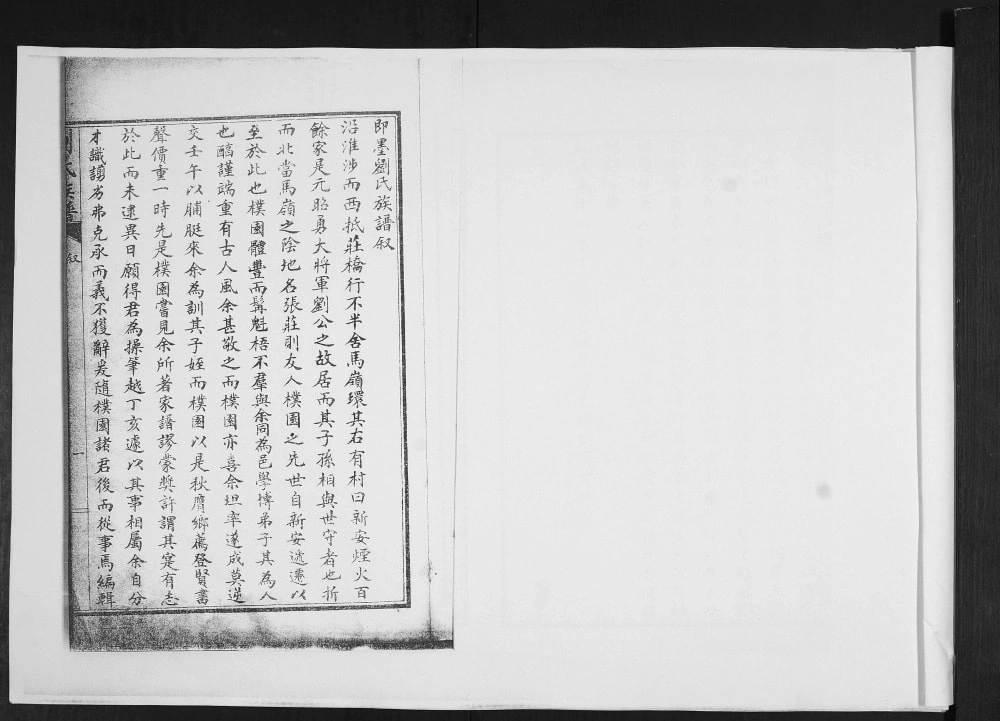 即墨劉氏族譜叙
沿淮涉而西抵莊橋行不半舍馬嶺環其右有村曰新安煙火百
餘家是元昭勇大將軍劉公之故居而其子孫相與世守者也折
而北當馬嶺之陰地名張莊則友人樸園之先世自新安遞遷以
至於此也樸園體豐而髯魁梧不羣與余同為邑學博弟子其為人
也醕謹端重有古人風余甚敬之而樸園亦喜余坦率遂成莫逆
交壬午以脯脡來余為訓其子姪而樸園以是秋膺鄉薦登賢書
聲價重一時先是樸園嘗見余所著家譜謬蒙獎許謂其寔有志
於此而未逮異日願得君為操筆越丁亥遽以其事相屬余自分
才識謭劣弗克承而義不獲辭爰隨樸園諸君後而從事焉編輯
氏族譜
叙
一